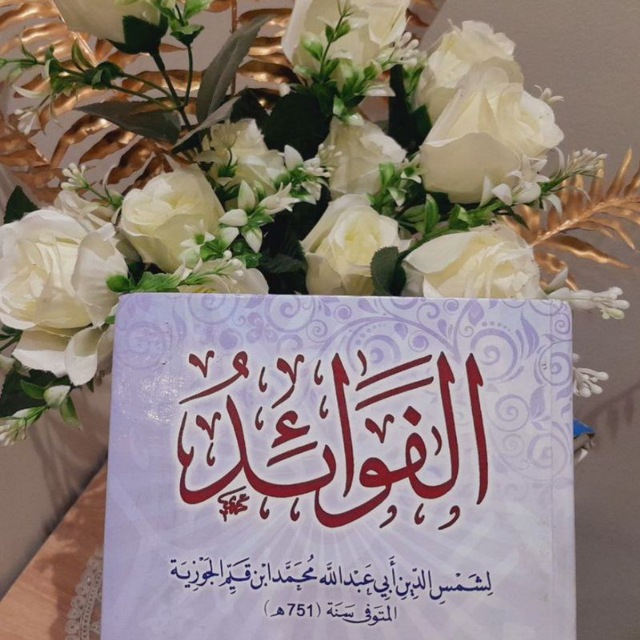 الفَوَائِدُ
لِشَمْسِ الدِّينِ أَبِي عَبْدِ اللَّه مُحَمَّد ابْن قَيِّمِ الجَوْزِيَة
المتَوَفَّى سَنَة (751 هـ)